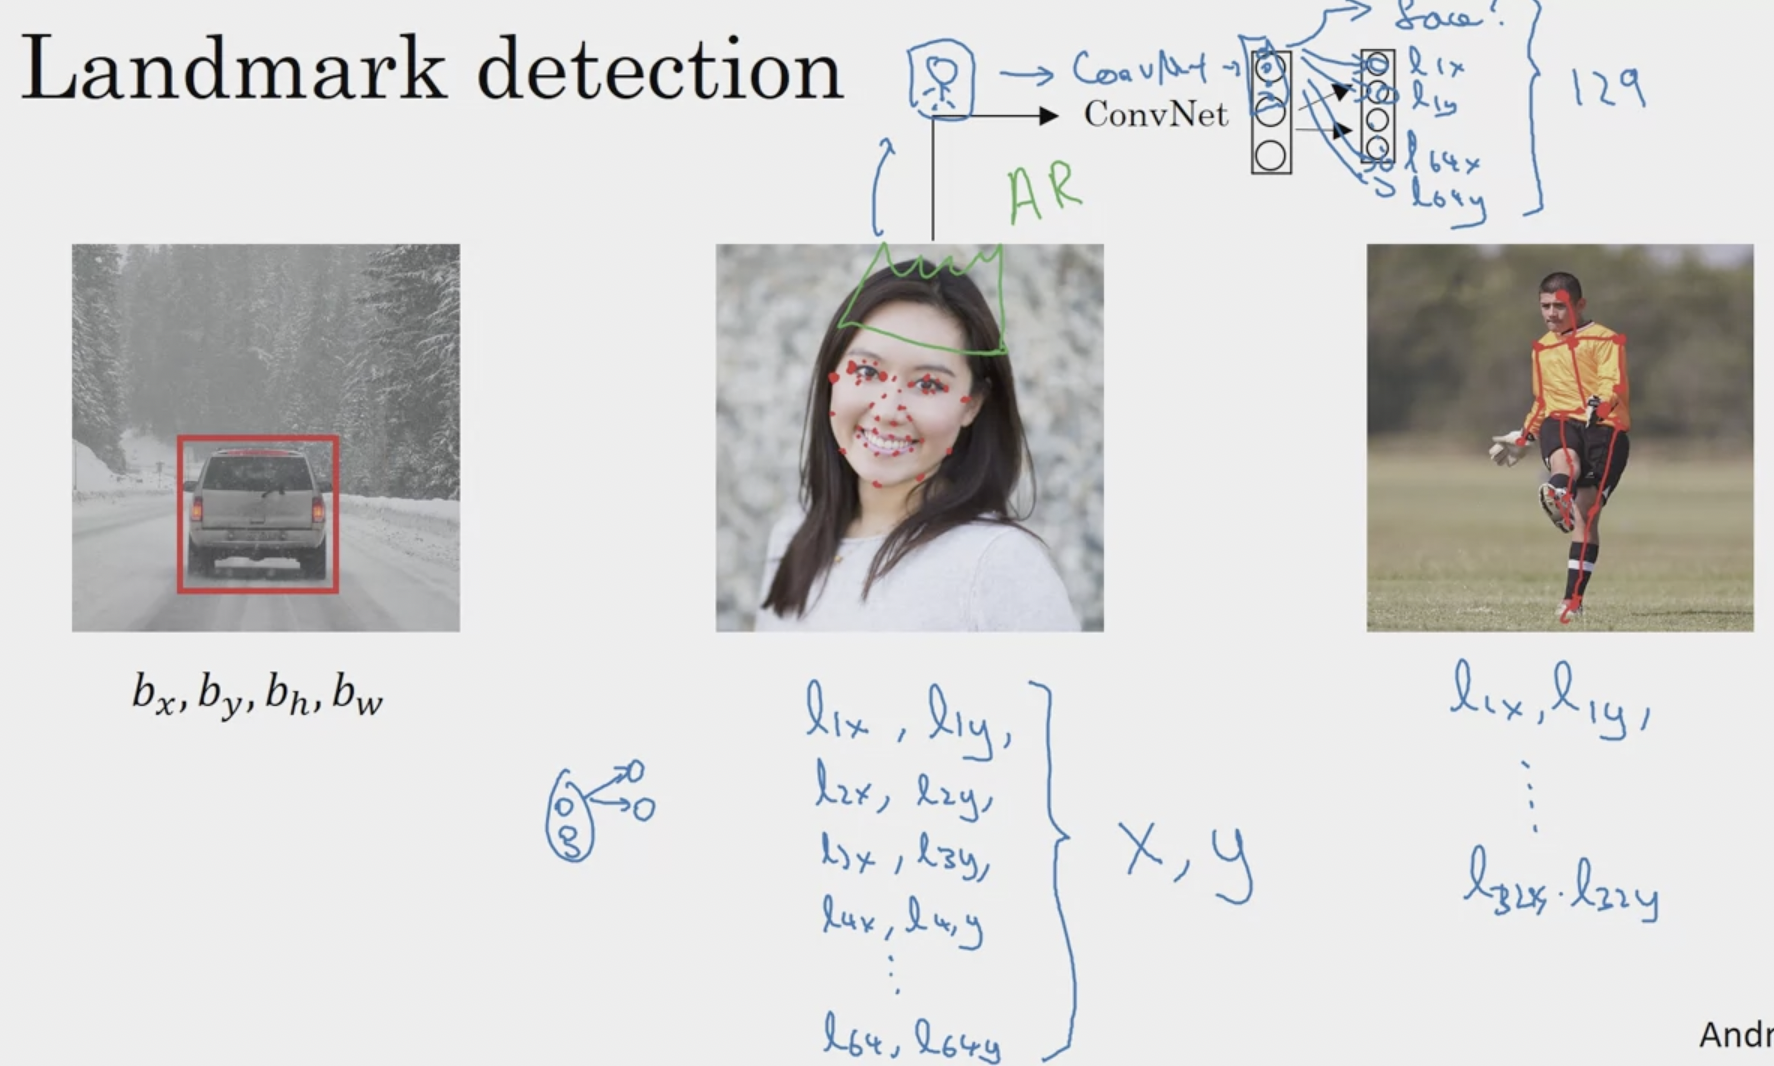 Landmark detection
ConvNet
ConvNet
face?
l1x
l1y
l64x
l64y
129
AR
bx, by, bh, bw
l1x, l1y,
l2x, l2y,
l3x, l3y,
l4x, l4,y
⋮
l64, l64y
x, y
l1x, l1y,
⋮
l32x, l32y
Andr